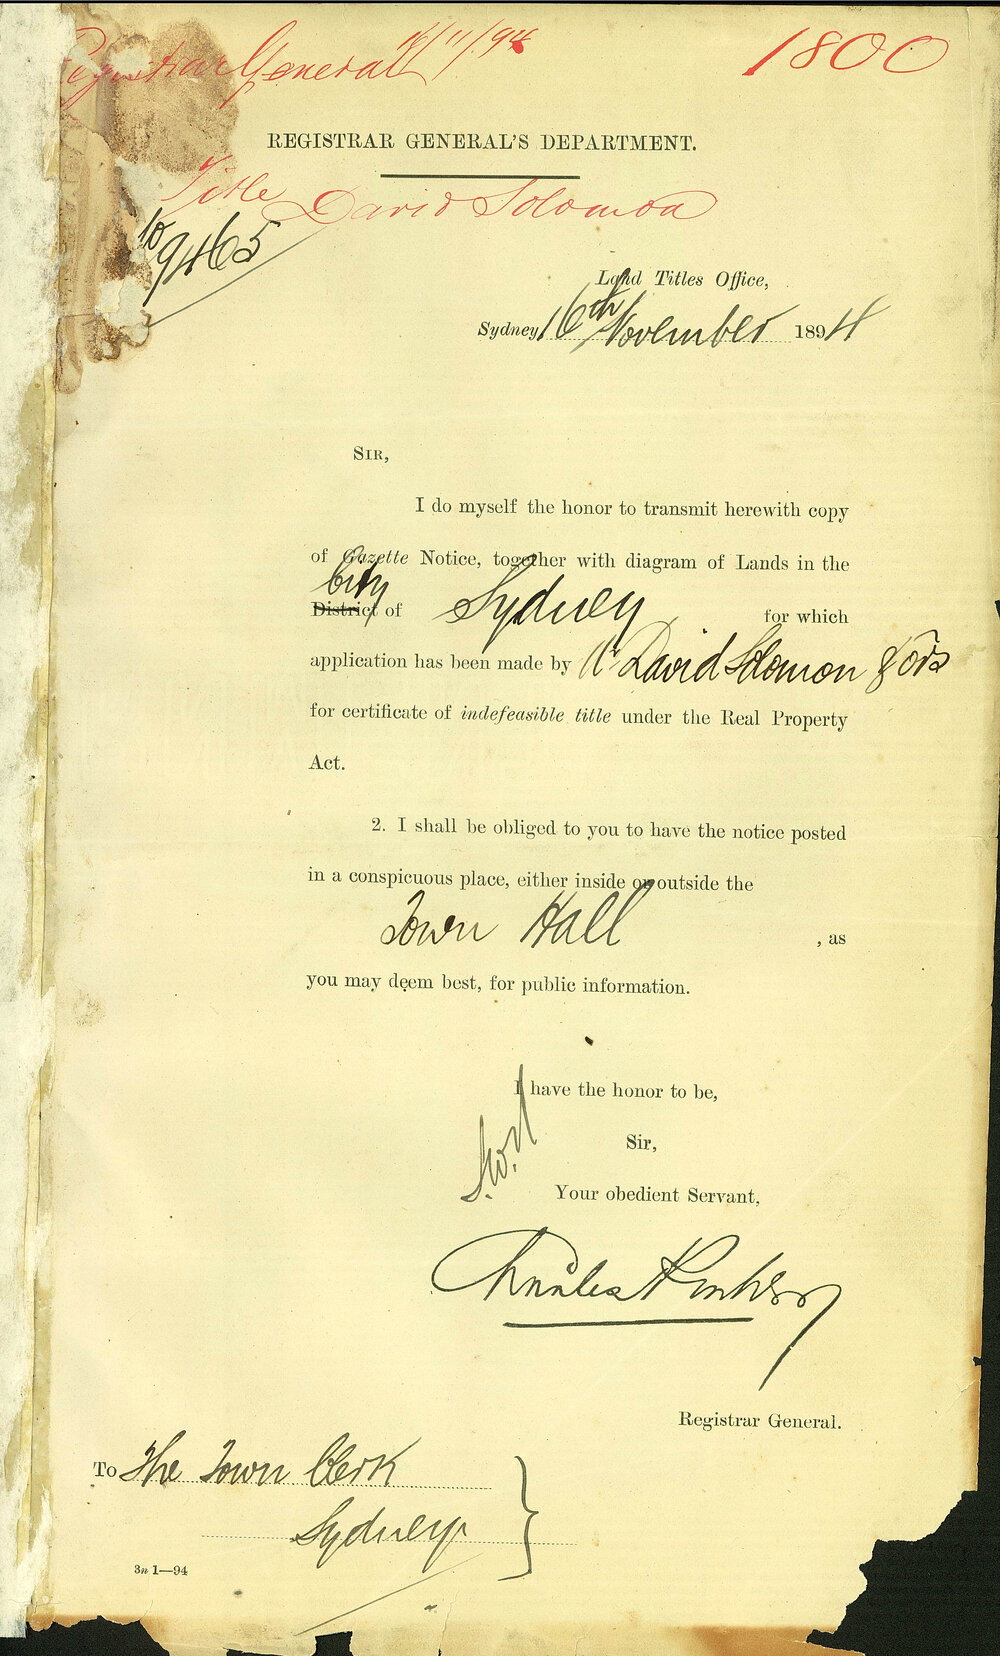 Registrar General 16/11/94 1800
REGISTRAR GENERAL'S DEPARTMENT.
Title David Solomon
9465
Land Titles Office,
Sydney 16th November 1894
SIR,
I do myself the honor to transmit herewith copy
of Gazette Notice, together with diagram of Lands in the
City
District of Sydney for which
application has been made by Mr David Solomon & ors
for certificate of indefeasible title under the Real Property
Act.
2. I shall be obliged to you to have the notice posted
in a conspicuous place, either inside or outside the
Town Hall , as
you may deem best, for public information.
I have the honor to be,
Sir,
Your obedient Servant,
Charles
Registrar General.
To The Town Clerk
Sydney
3n 1—94